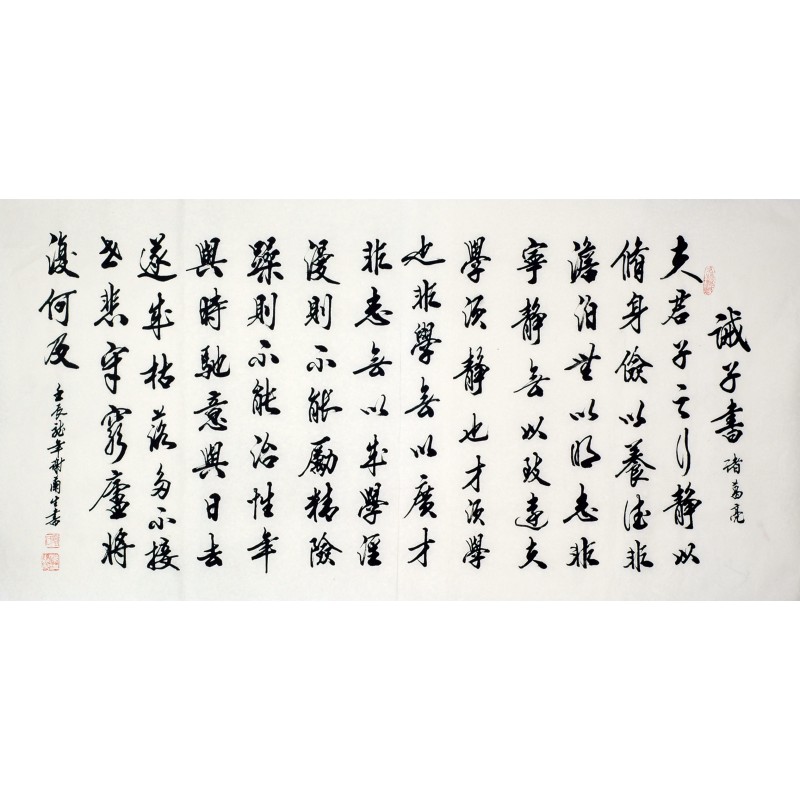 誡子書
諸葛亮
夫君子之行靜以
脩身儉以養德非
澹泊無以明志非
寧靜無以致遠夫
學須靜也才須學
也非學無以廣才
非志無以成學淫
漫則不能勵精險
躁則不能治性年
與時馳意與日去
遂成枯落多不接
世悲守窮廬將
復何及
壬辰龍年謝生書